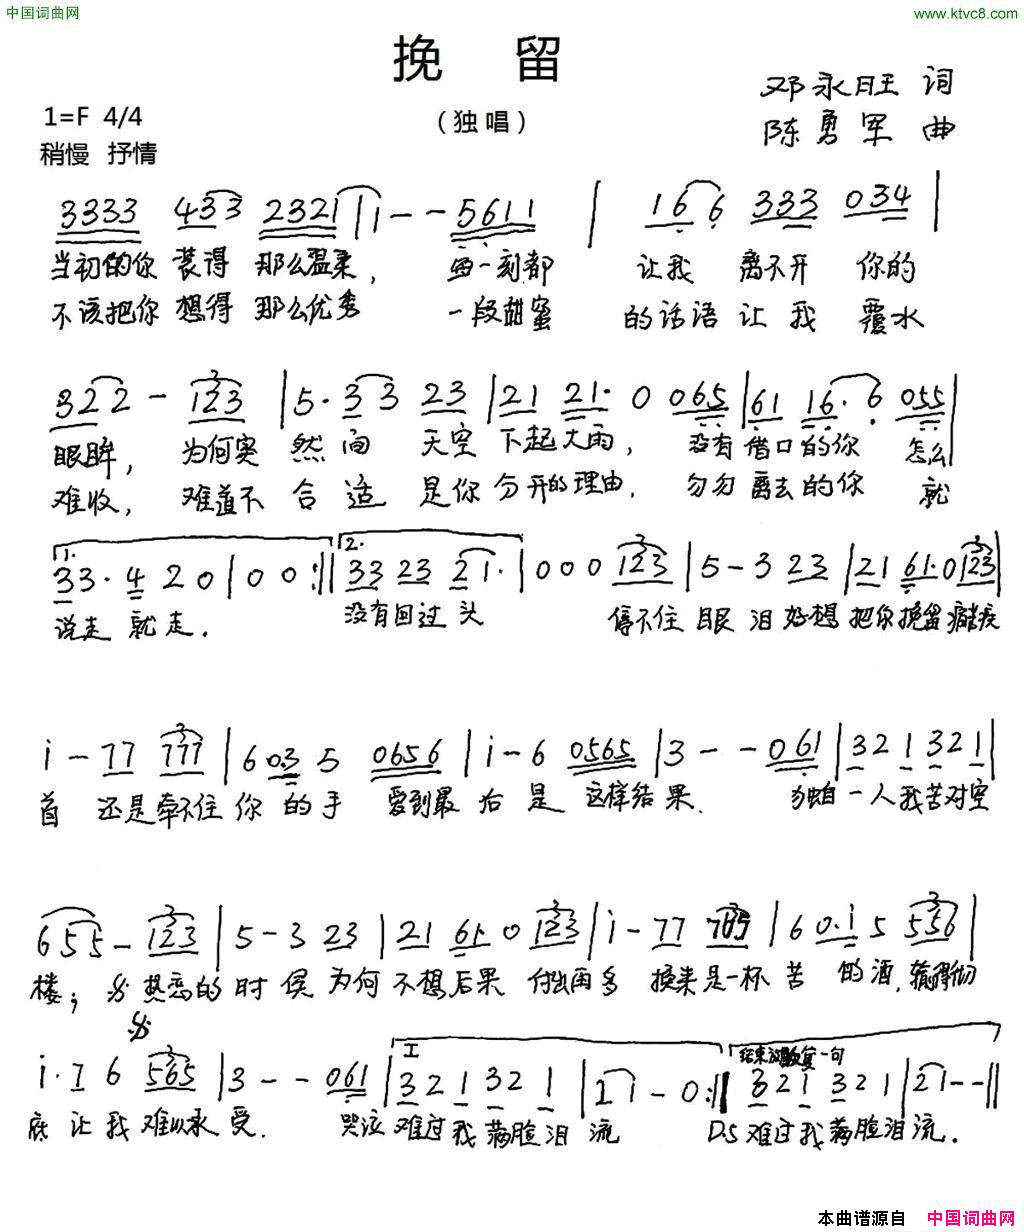 中国词曲网
www.ktvc8.com
挽 留
1=F 4/4
(独唱)
邓永旺 词
稍慢 抒情
陈勇军 曲
3333 433 2321 | 1 - - 5611 | 166 333 034 |
当初的你 装得 那么温柔, 每一刻都 让我 离不开 你的
不该把你 想得 那么优秀 一段甜蜜 的话语 让我 覆水
322 - 123 | 5· 33 23 | 21 21· 0 065 | 61 16· 6 055 |
眼眸, 为何突 然间 天空 下起大雨, 没有借口的你 怎么
难收, 难道不 合适 是你 分开的理由, 匆匆离去的你 就
1. 33· 4 20 | 00 :|| 2. 33 23 21· | 000 123 | 5 - 3 23 | 21 61· 0 123 |
说走 就走. 没有回过头 停不住 眼 泪 好想 把你挽留
i - 77 777 | 6 03 5 0656 | i - 6 0565 | 3 - - 061 | 321 321 |
首 还是牵不住 你 的 手 爱到最 后 是 这样结果. 独自 一人我苦对空
655 - 123 | 5 - 3 23 | 21 61· 0 123 | i - 77 765 | 6 0·i 5 556 |
楼; 热恋的 时 候 为何 不想后果 付出再多 换来是一杯 苦 的酒, 输得彻
i· i 6 565 | 3 - - 061 | I 321 321 | 11 - 0 :|| 结束 反复一句 321 321 | 21 - - ||
底 让 我 难以承 受. 哭泣 难过我满脸泪 流 D.S 难过我满脸泪流.
本曲谱源自 中国词曲网